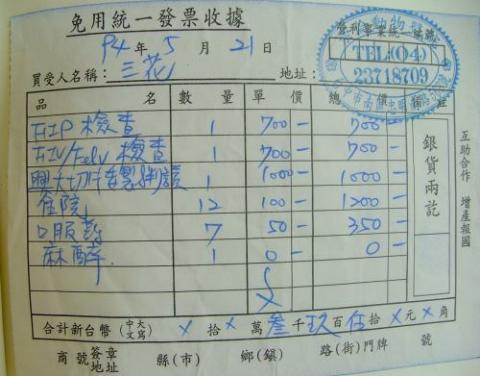 免用統一發票收據
94年5月21日
買受人名稱：三花 地址：
動物
營利事業統一編號
TEL:(04)
23718709
品名 數量 單價 總價 備註
FIP 檢查 1 700— 700—
FIV/Felv 檢查 1 700— 700—
興大切片製判讀 1 1000— 1000—
住院 12 100— 1200—
口服藥 7 50— 350—
麻醉 1 0— 0—
銀貨兩訖
互助合作 增產報國
合計新台幣(中文大寫) X拾X萬叁千玖百伍拾X元X角
商號簽章地址 縣(市) 鄉(鎮) 路(街)門牌 號